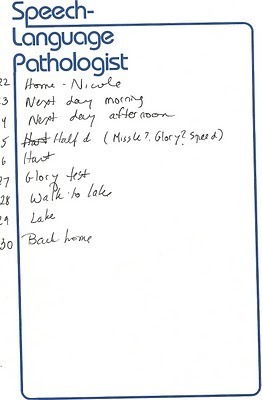 Speech-
Language
Pathologist
22 Home - Nicole
3 Next day morning
4 Next day afternoon
5 Hart Half d (Missle? Glory? Speed)
6 Hart
27 Glory fest
28 Walk to lake
29 Lake
30 Back home